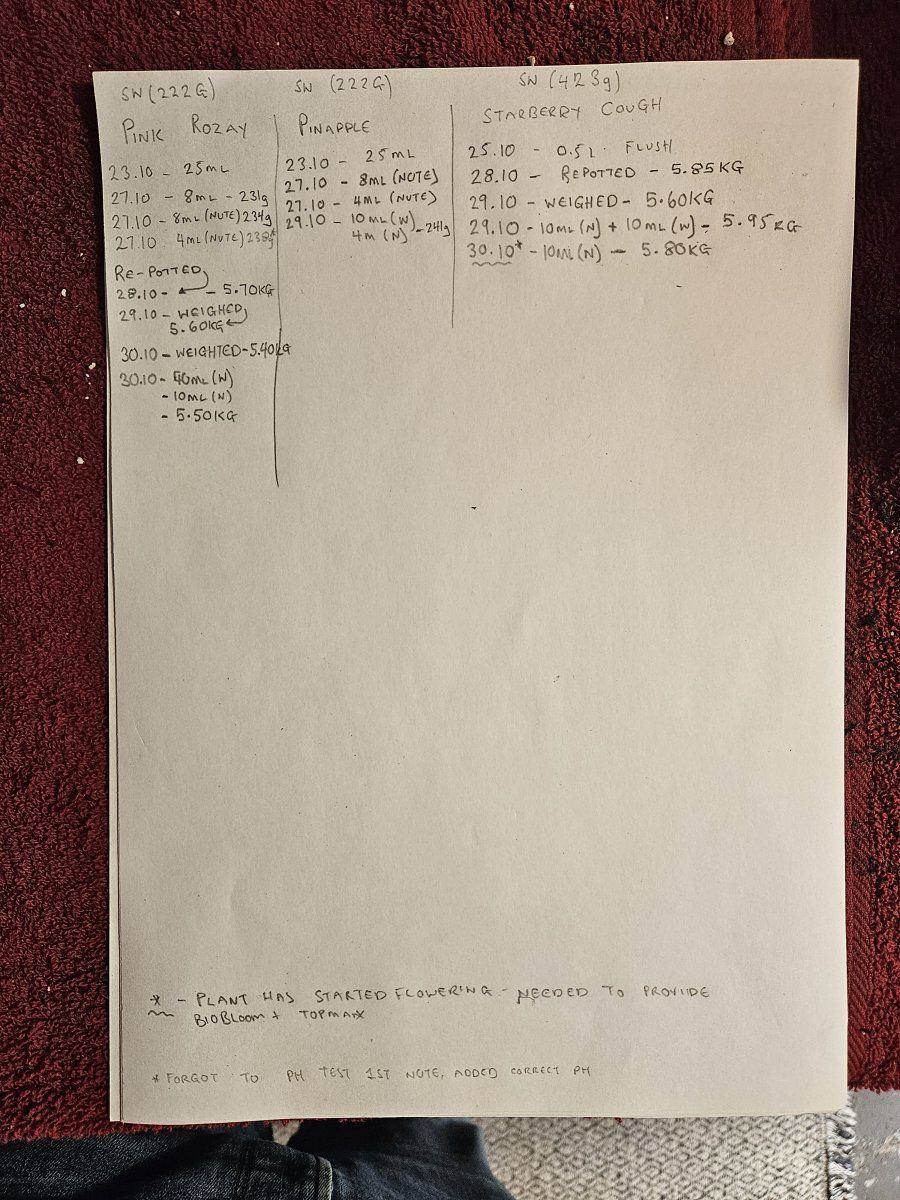 SN (222G)
PINK ROZAY
23.10 - 25ML
27.10 - 8ML - 231g
27.10 - 8ML (NUTE) 234g
27.10 4ML (NUTE) 238g*
RE-POTTED
28.10 - - 5.70KG
29.10 - WEIGHED
5.60KG
30.10 - WEIGHTED - 5.40KG
30.10 - 50ML (W)
- 10ML (N)
- 5.50KG
SN (222G)
PINAPPLE
23.10 - 25ML
27.10 - 8ML (NUTE)
27.10 - 4ML (NUTE)
29.10 - 10ML (W)
4M (N) - 241g
SN (423g)
STARBERRY COUGH
25.10 - 0.5L FLUSH
28.10 - REPOTTED - 5.85KG
29.10 - WEIGHED - 5.60KG
29.10 - 10ML (N) + 10ML (W) - 5.95KG
30.10* - 10ML (N) - 5.80KG
* - PLANT HAS STARTED FLOWERING - NEEDED TO PROVIDE
~ BIOBLOOM + TOPMAX
* FORGOT TO PH TEST 1ST NUTE, ADDED CORRECT PH